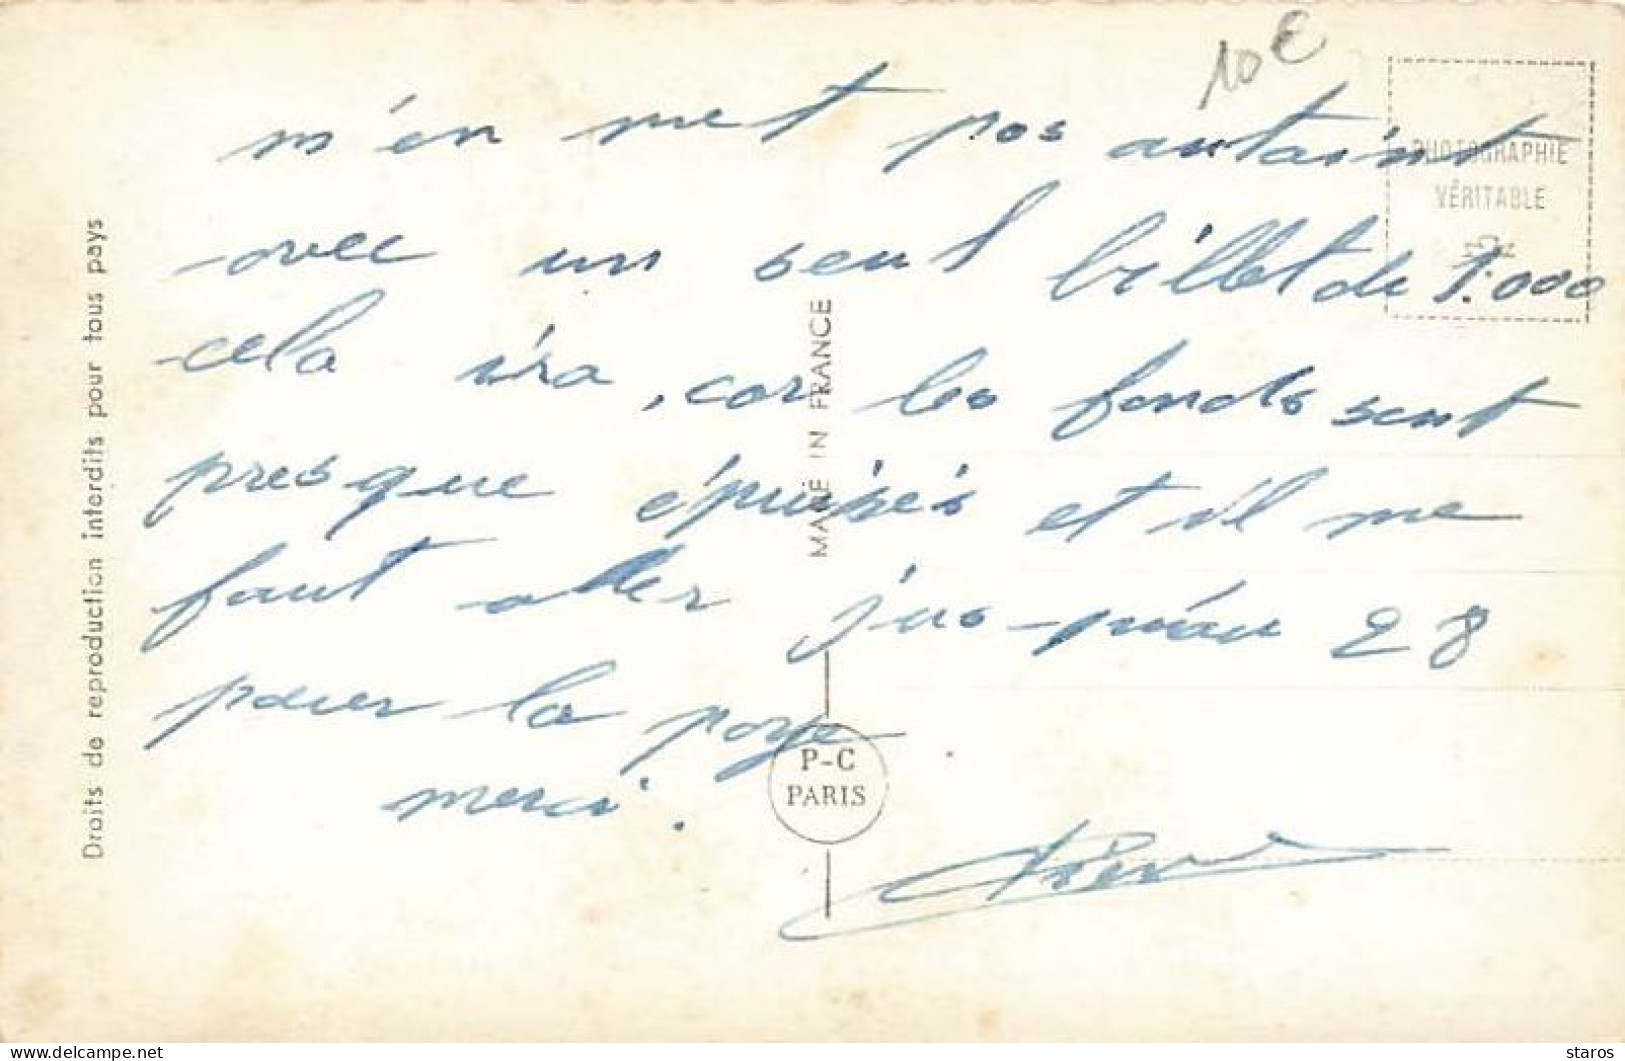 10 €
m'en met pas autaint
avec un seul billet de 1.000
cela ira, car les fonds sont
presque épuisés et il me
faut aller jus-qu'au 28
pour la paye
merci.
PHOTOGRAPHIE
VÉRITABLE
Droits de reproduction interdits pour tous pays
MADE IN FRANCE
P-C
PARIS
delcampe.net
staros